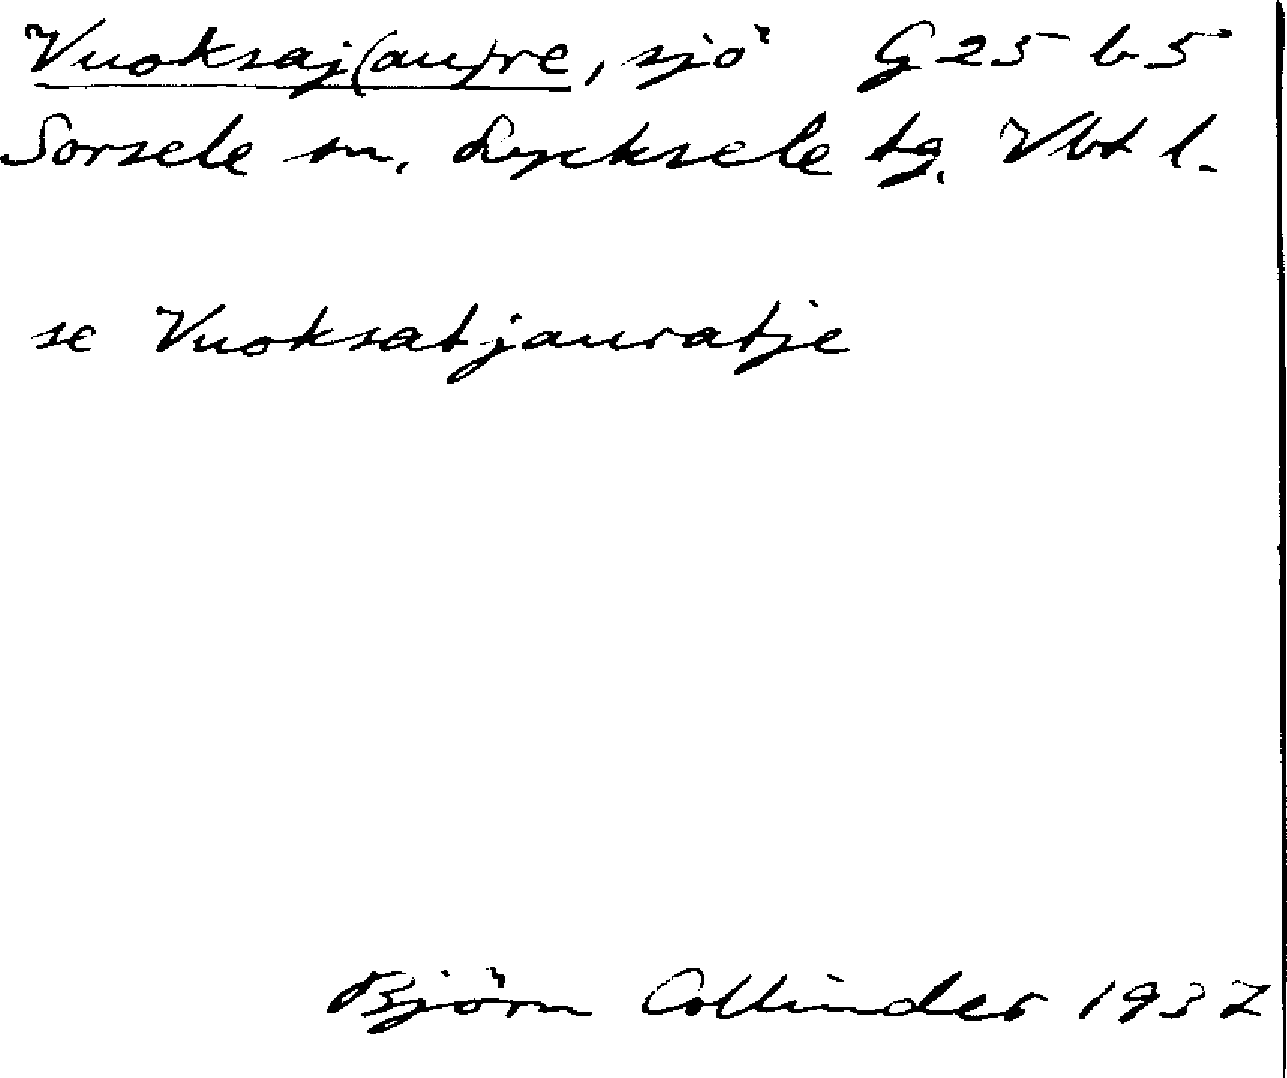 Vuoksaj(au)re, sjö G 25 b 5
Sorsele sn, Lycksele tg. Vbt l.
se Vuoksatjauratje
Björn Collinder 1937